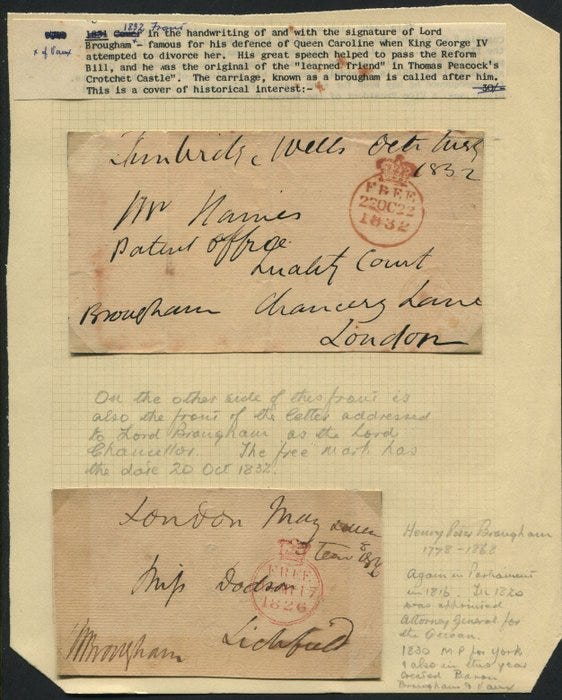 1832 Front
1831 Cover in the handwriting of and with the signature of Lord
x of Vaux
Brougham x famous for his defence of Queen Caroline when King George IV
attempted to divorce her. His great speech helped to pass the Reform
Bill, and he was the original of the "learned friend" in Thomas Peacock's
Crotchet Castle". The carriage, known as a brougham is called after him.
This is a cover of historical interest:-
30/-
Tunbridge Wells Octr
1832
FREE
22OC22
1832
Mr
Patent Office
Quality Court
Brougham Chancery Lane
London
On the other side of this front is
also the front of the letter addressed
to Lord Brougham as the Lord
Chancellor. The free mark has
the date 20 Oct 1832.
London May
FREE
17
1826
Miss Dodson
Lichfield
HBrougham
Henry Peter Brougham
1778-1868
Again in Parliament
in 1816. In 1820
was appointed
Attorney General for
the Queen.
1830 M.P for York
& also in this year
created Baron
Brougham & Vaux